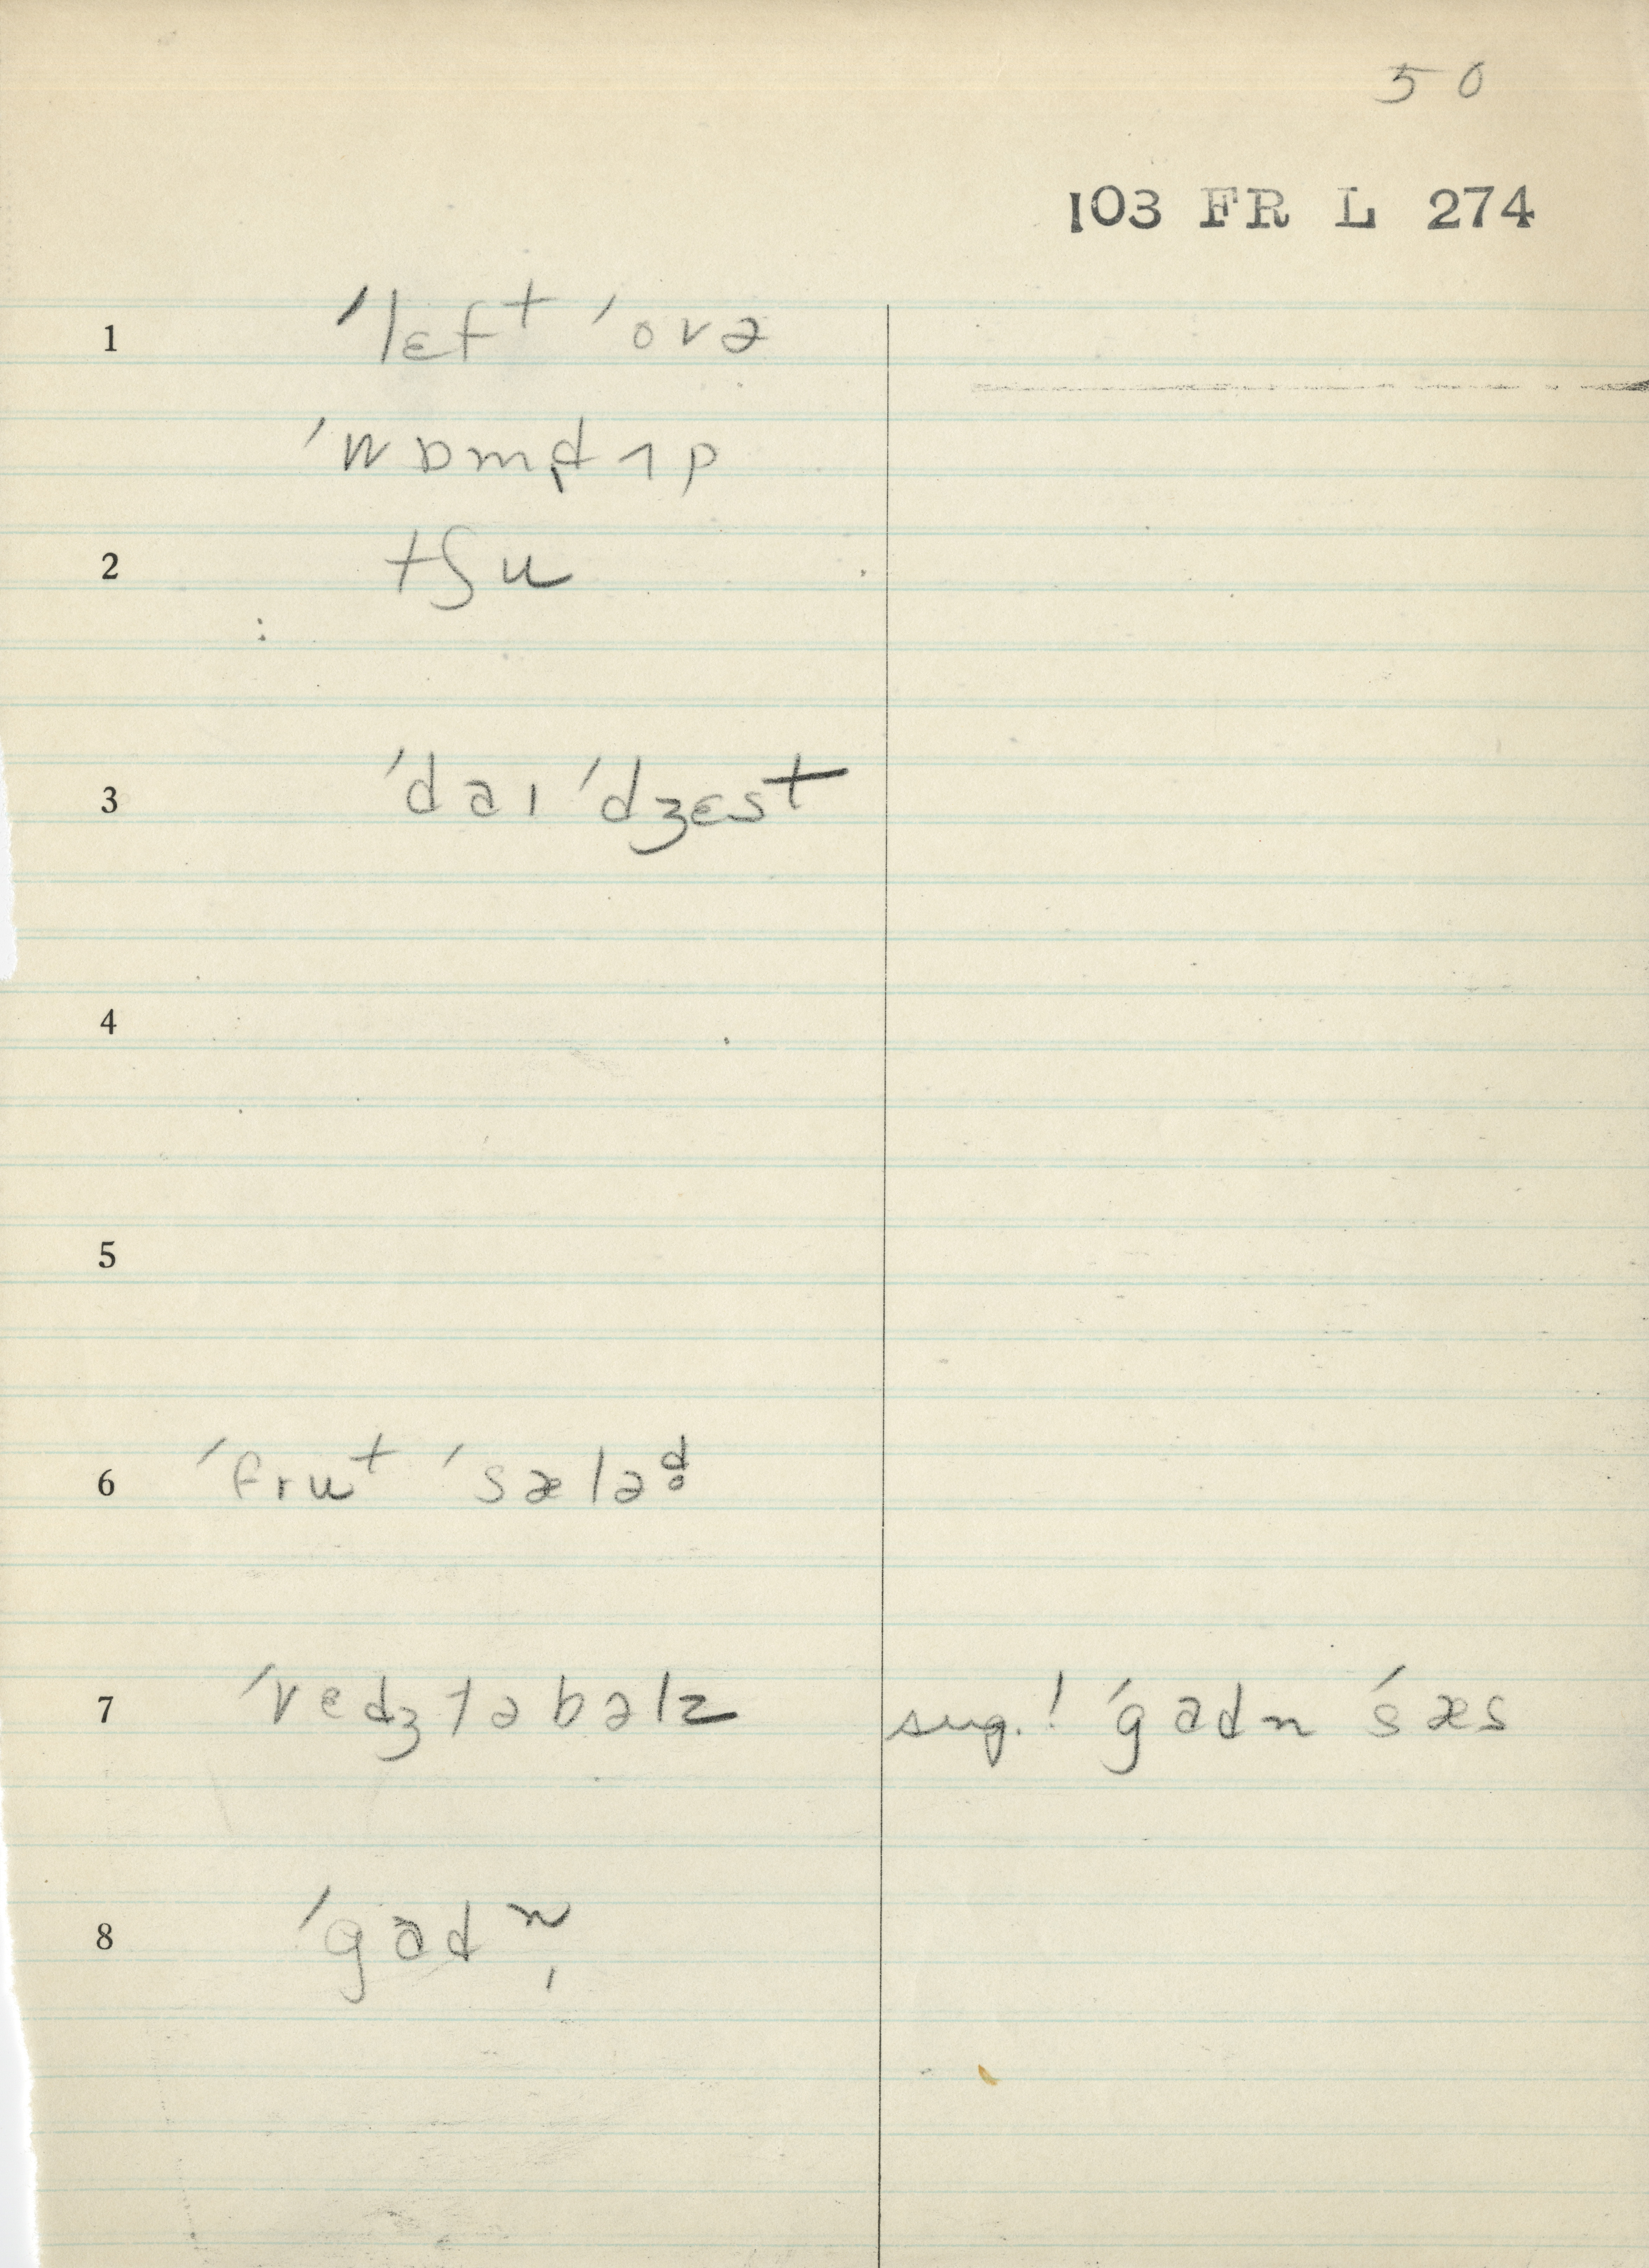 50
103 FR L 274
1 ˈlɛfᵗ ˈovə
ˈwɒmd̥ ʌp
2 tʃu
3 ˈdaɪˈdʒɛst
4
5
6 ˈfruᵗ ˈsæləd̥
7 ˈvedʒtəbəlz sug.! ˈgadn ˈsæs
8 ˈgadn̩